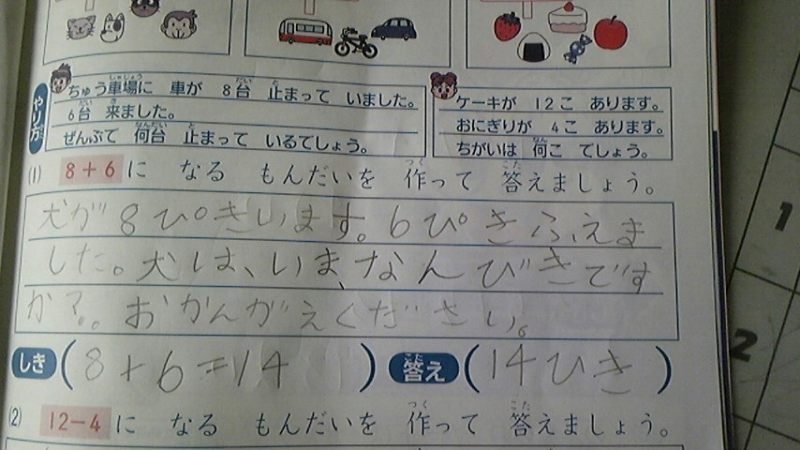 ちゅう車場に 車が 8台 止まって いました。
6台 来ました。
ぜんぶで 何台 止まって いるでしょう。
やり方
ケーキが 12こ あります。
おにぎりが 4こ あります。
ちがいは 何こ でしょう。
(1) 8+6に なる もんだいを 作って 答えましょう。
犬が8ぴきいます。6ぴきふえま
した。犬は、いま、なんびきです
か?。おかんがえください。
しき(8+6=14) 答え(14ひき)
(2) 12-4に なる もんだいを 作って 答えましょう。
1
2